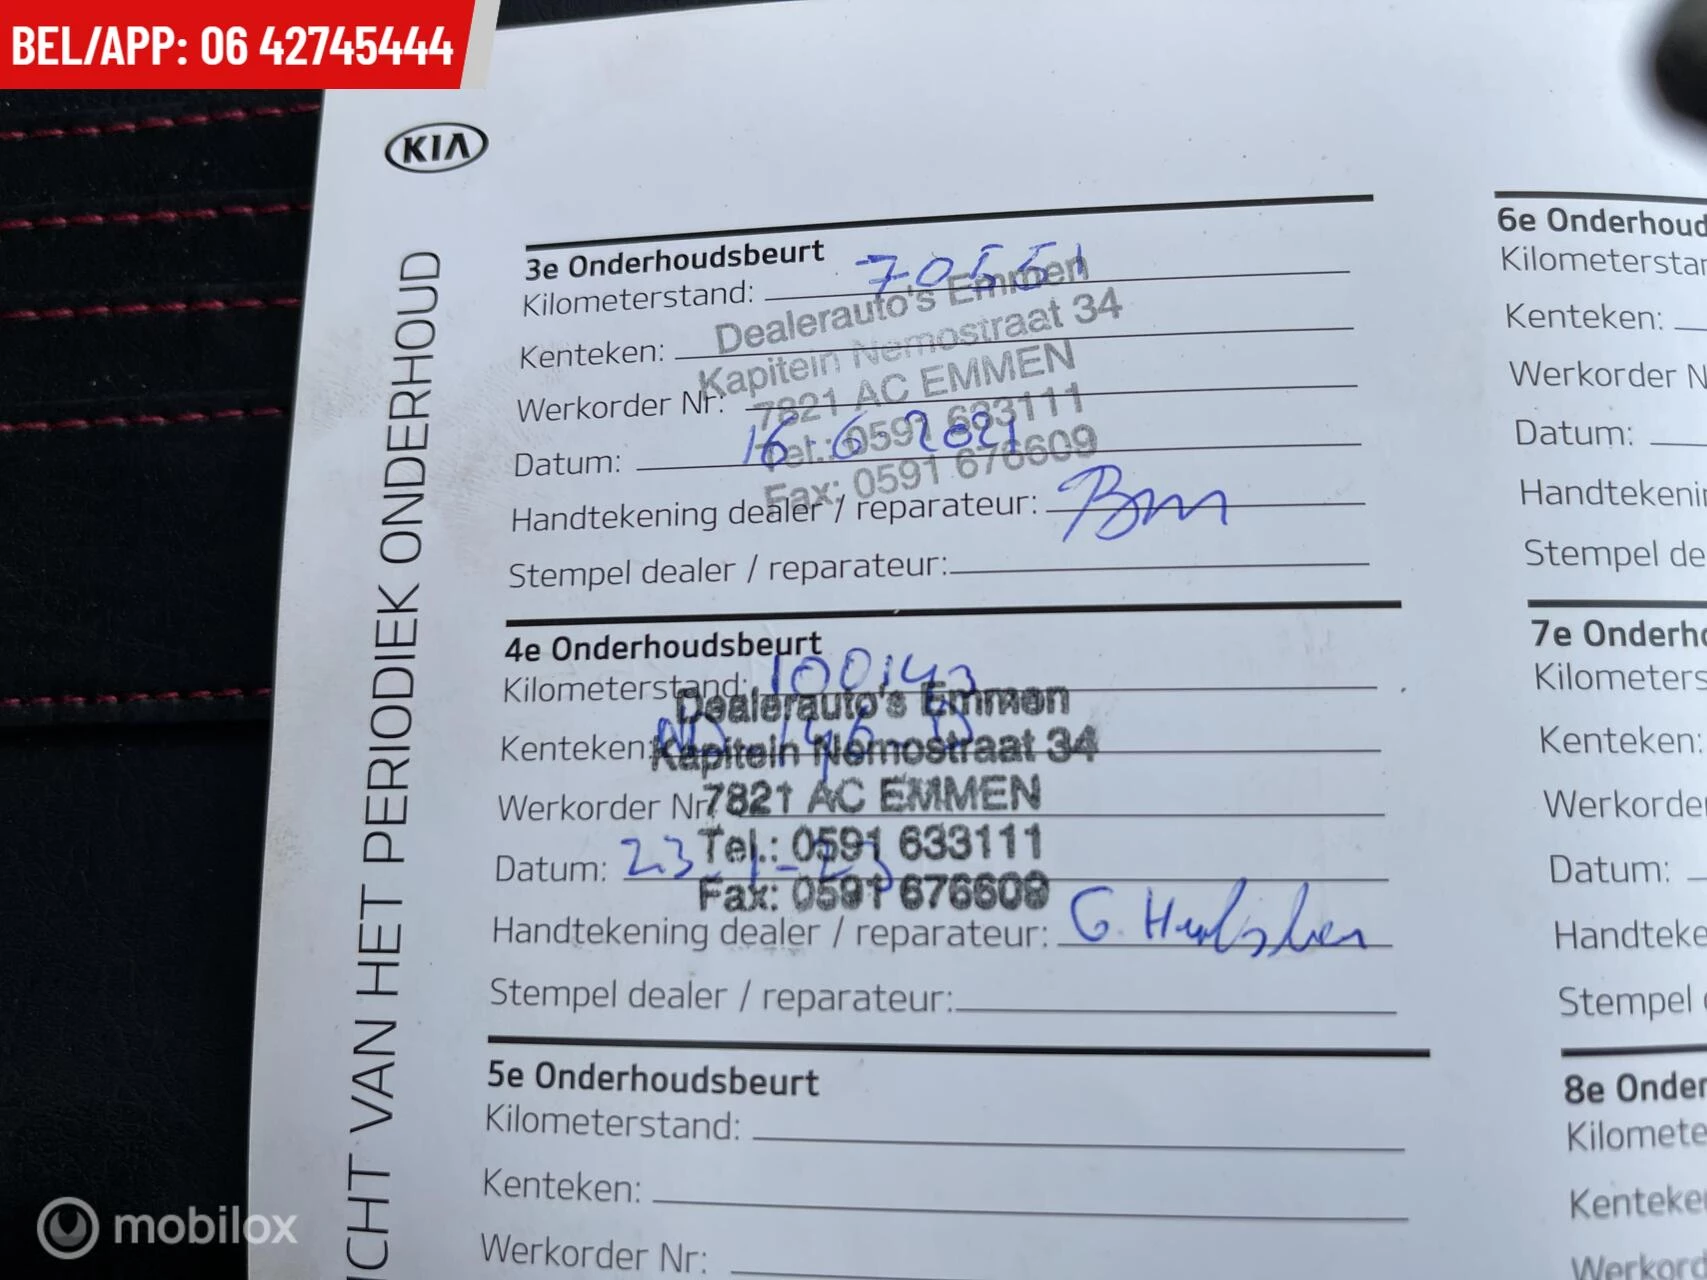 BEL/APP: 06 42745444
KIA
CHT VAN HET PERIODIEK ONDERHOUD
3e Onderhoudsbeurt
Kilometerstand: 70551
Kenteken:
Werkorder Nr.:
Datum: 16-6-2021
Handtekening dealer / reparateur:
Stempel dealer / reparateur:
Dealerauto's Emmen
Kapitein Nemostraat 34
7821 AC EMMEN
Tel.: 0591 633111
Fax: 0591 676609
4e Onderhoudsbeurt
Kilometerstand: 100143
Kenteken:
Werkorder Nr
Datum: 23-1-23
Handtekening dealer / reparateur: G.
Stempel dealer / reparateur:
Dealerauto's Emmen
Kapitein Nemostraat 34
7821 AC EMMEN
Tel.: 0591 633111
Fax: 0591 676609
5e Onderhoudsbeurt
Kilometerstand:
Kenteken:
Werkorder Nr:
6e Onderhoud
Kilometerstan
Kenteken:
Werkorder N
Datum:
Handtekenin
Stempel de
7e Onderho
Kilometers
Kenteken:
Werkorde
Datum:
Handteke
Stempel
8e Onder
Kilomete
Kenteke
Werkord
mobilox